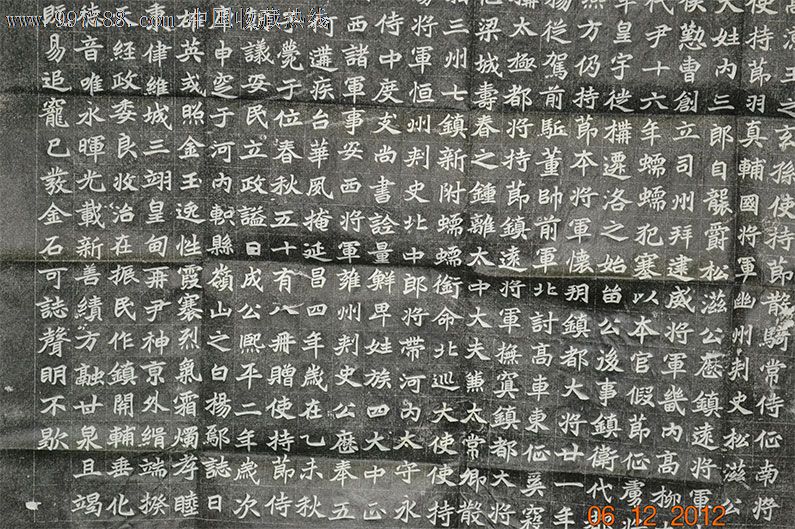 www.997788.com 中国收藏热线
王之玄孫使持節散騎常侍征南將
使持節羽真輔國將軍幽州刾史松滋公
大姓內三郎自襲爵松滋公歷鎮遠將軍
候懃曹創立司州拜建威將軍畿內高柳
代尹十六年蠕蠕犯塞以本官假節征虜
皇宇徙構遷洛之始留公後事鎮衛代
方仍持節本將軍懷朔鎮都大將廿一年
揚從駕前駈董帥前軍北討高車東征奚寇
構太極都將持節鎮遠將軍撫冥鎮都大將
北梁城壽春之鍾離太中大夫兼太常卿散
三州七鎮新附蠕蠕銜命北巡大使使持
將軍恒州刾史北中郎將帶河內太守永
侍中度支尚書詮量鮮卑姓族四大中正
西諸軍事安西將軍雍州刾史公歷奉五
遘疾台華風掩延昌四年歲在乙未秋
薨于位春秋五十有八冊贈使持節侍
議安民立政謚曰成公熙平二年歲次
甲申窆于河內軹縣嶺山之白楊鄔誌曰
英或照金玉逸性霞褰烈氣霜燭孝睦
事律維城三翊皇甸再尹神京外緝端揆
經政委良收治在振民作鎮開輔垂化
德音唯永暉光載新善績方融廿泉且竭
既易追寵已發金石可誌聲明不歇
06 12 2012